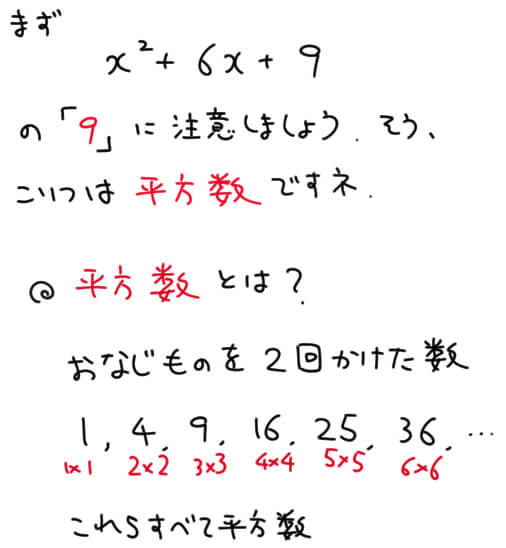 まず
x²+ 6x + 9
の「9」に注意しましょう. そう、
こいつは 平方数 ですネ.
◎ 平方数 とは?
おなじものを 2回かけた数
1, 4, 9, 16, 25, 36, …
1×1 2×2 3×3 4×4 5×5 6×6
これらすべて平方数